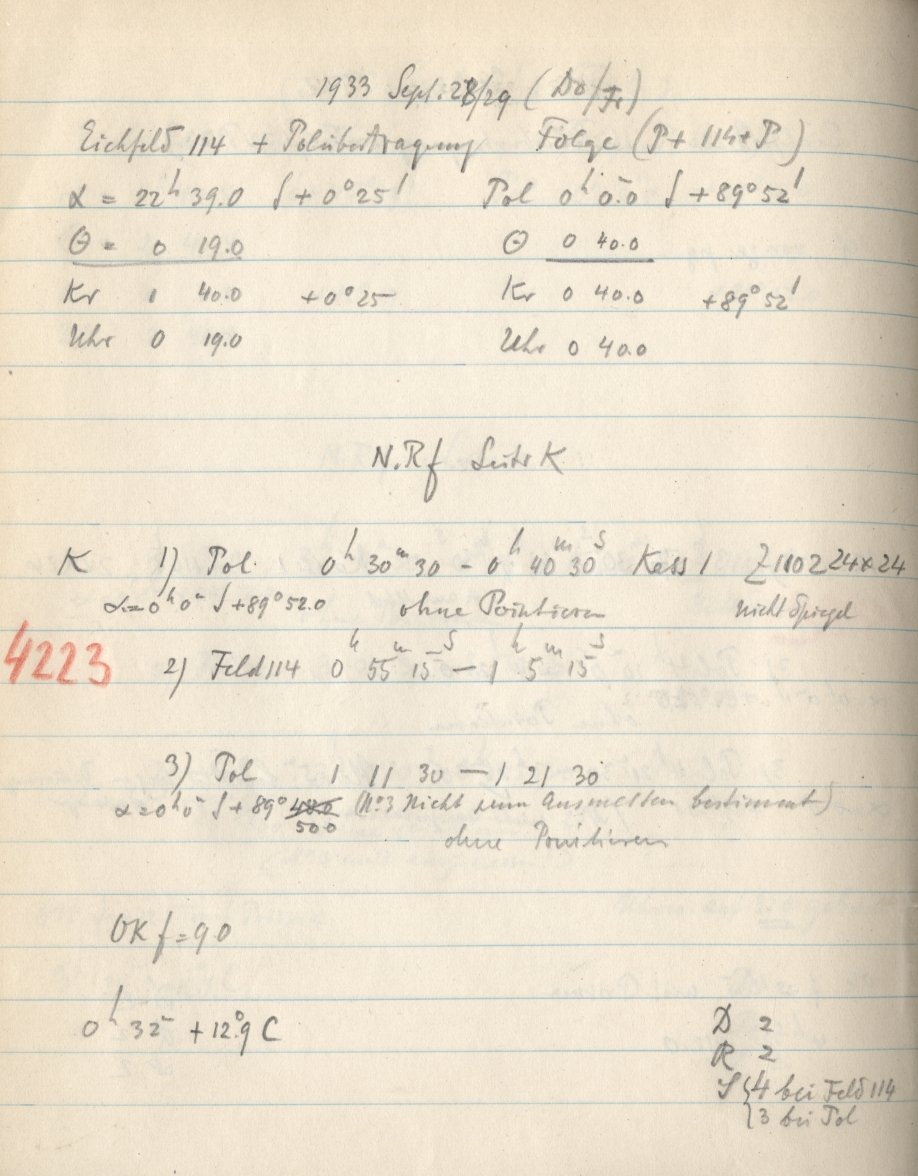 1933 Sept. 28/29 (Do/Fr)
Eichfeld 114 + Polübertragung Folge (P + 114 + P)
α = 22ʰ 39.0 δ + 0° 25' Pol 0ʰ 0ᵐ.0 δ + 89° 52'
Θ = 0 19.0 Θ 0 40.0
Kr 1 40.0 + 0° 25 Kr 0 40.0 + 89° 52'
Uhr 0 19.0 Uhr 0 40.0
N.Rf Seite K
K 1) Pol. 0ʰ 30ᵐ 30 - 0ʰ 40ᵐ 30ˢ Kass 1 Z 1102 24 x 24
α = 0ʰ 0ᵐ δ + 89° 52.0 ohne Pointieren nicht Spiegel
4223 2) Feld 114 0ʰ 55ᵐ 15ˢ — 1ʰ 5ᵐ 15ˢ
3) Pol 1 11 30 — 1 21 30
α = 0ʰ 0ᵐ δ + 89° 48.0 (No 3 Nicht zum Ausmessen bestimmt)
50.0 ohne Pointieren
OK f = 9.0
0ʰ 32ᵐ + 12.°9 C
D 2
R 2
S { 4 bei Feld 114
{ 3 bei Pol